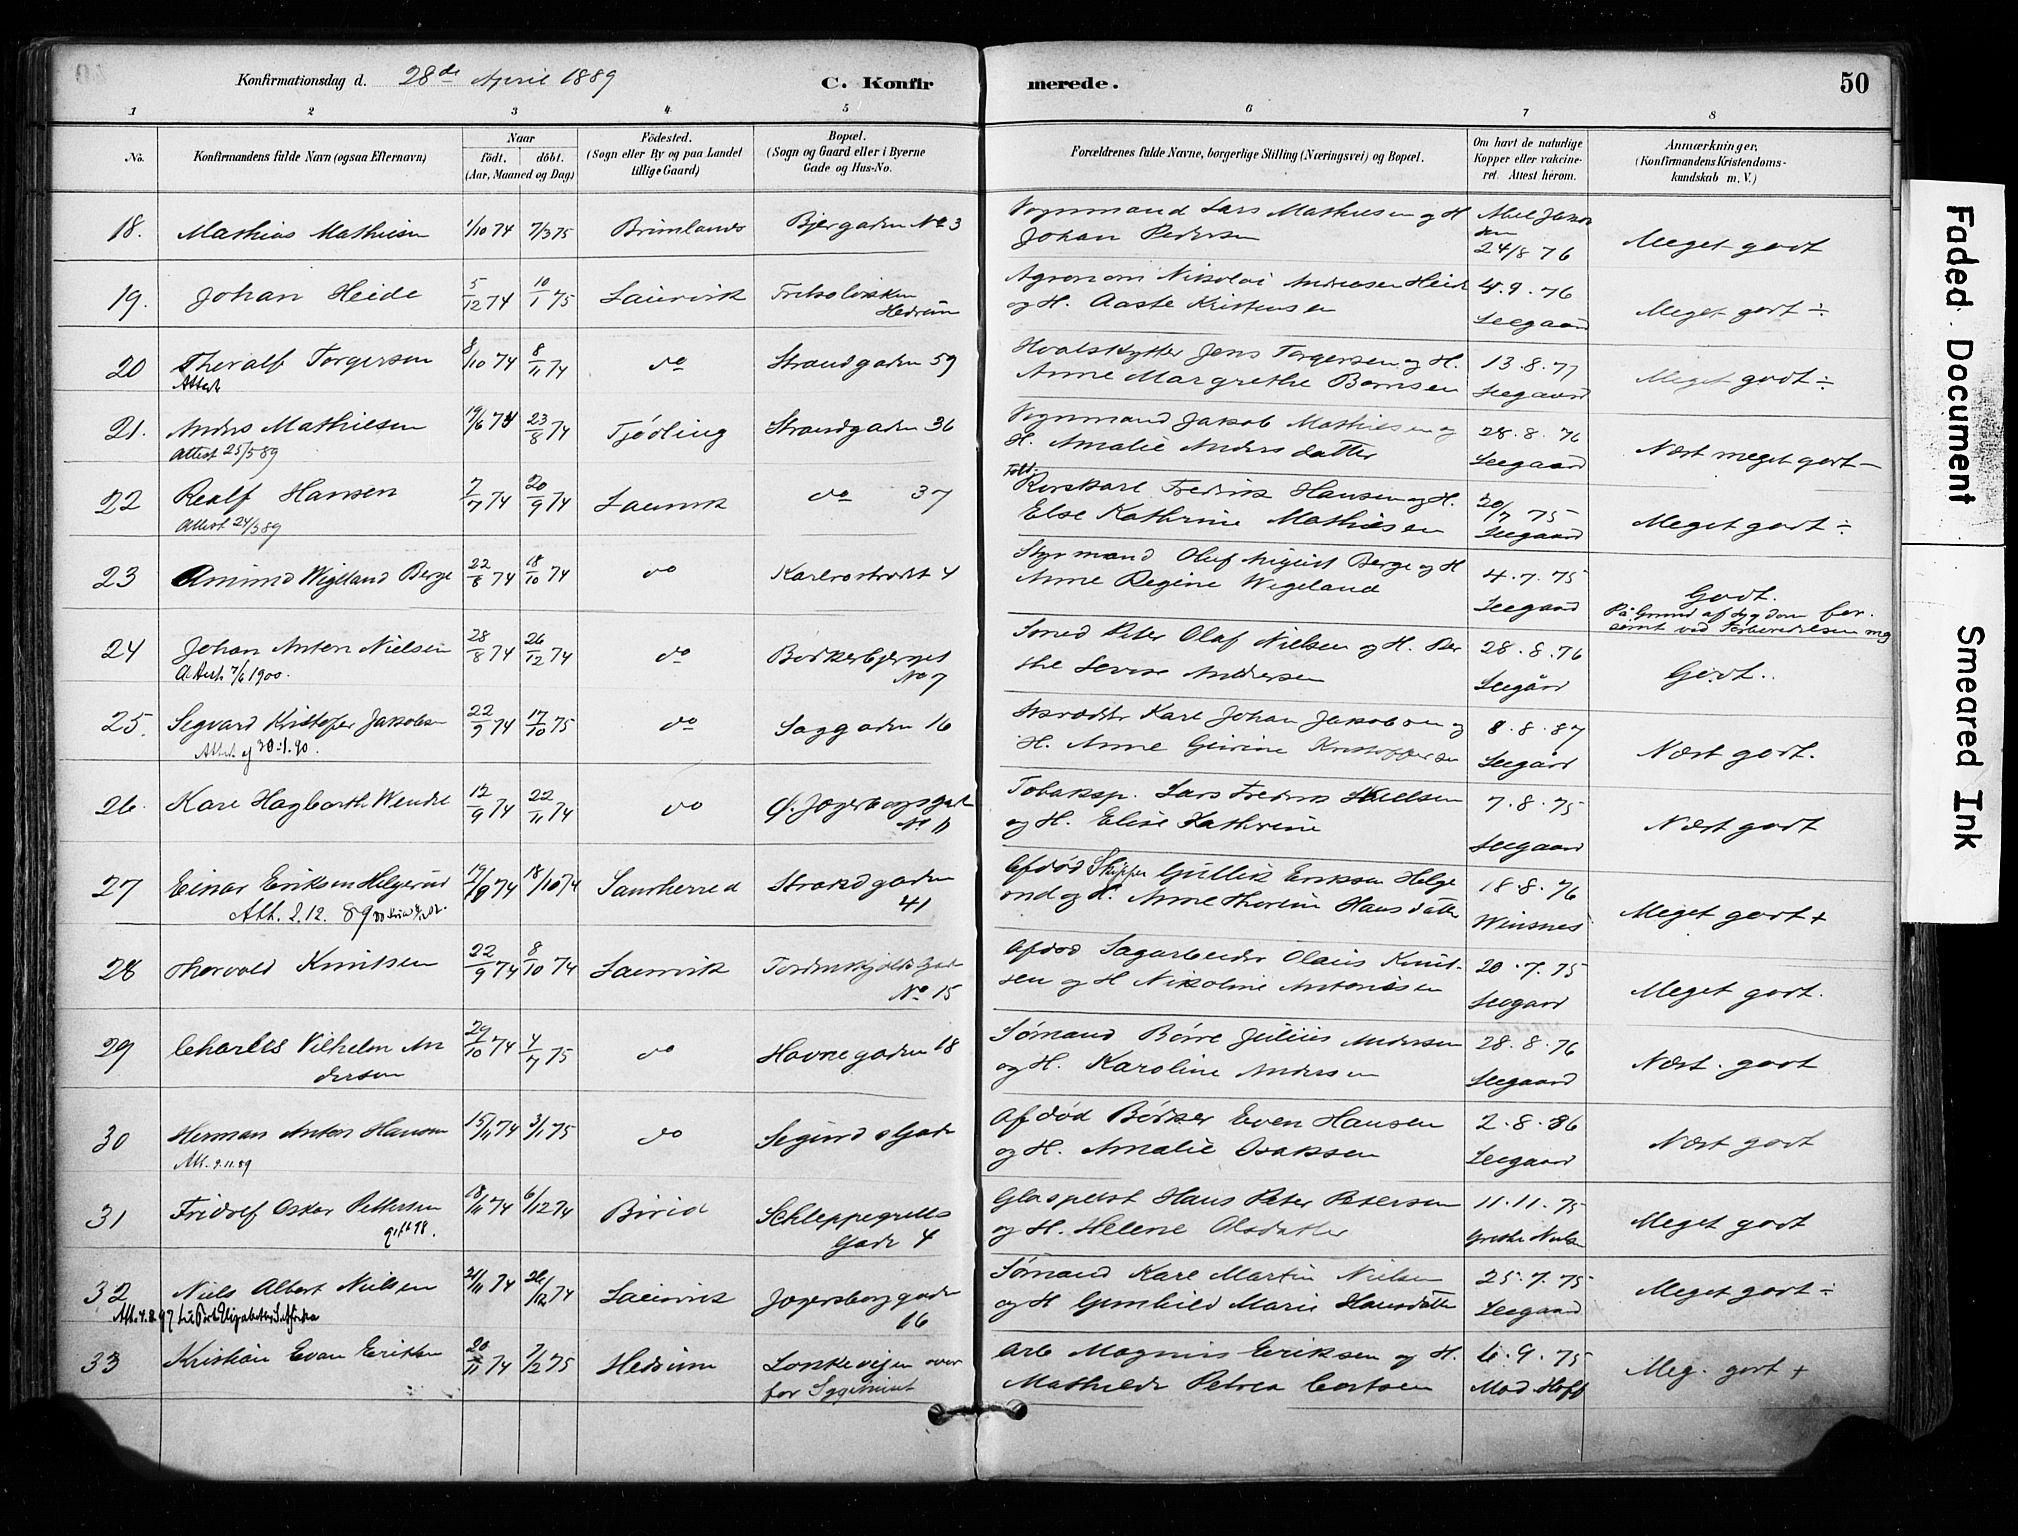 Konfirmationsdag d. 28de April 1889
C. Konfir
merede.
50
1 2 3 4 5 6 7 8
No.
Konfirmandens fulde Navn (ogsaa Efternavn)
Naar
födt. döbt.
(Aar, Maaned og Dag)
Födested.
(Sogn eller By og paa Landet
tillige Gaard)
Bopæl.
(Sogn og Gaard eller i Byerne
Gade og Hus-No.
Forældrenes fulde Navne, borgerlige Stilling (Næringsvei) og Bopæl.
Om havt de naturlige
Kopper eller vakcine-
ret. Attest herom.
Anmærkninger.
(Konfirmandens Kristendoms-
kundskab m. V.)
18. Mathias Mathisen 1/10 74 7/3 75 Brunlanes Bjergaden No 3
Vognmand Lars Mathiesen og H.
Johan Pedersen
24/8 76 Meget godt
19. Johan Heide 5/12 74 10/1 75 Laurvik
Hedrum
Agronom Nikolai Andresen Heide
og H. Aaste Kristensen
4.9.76
Seegaard Meget godt ÷
20 Theralf Torgersen 8/10 74 8/11 74 do Strandgaden 59
Attest
Hvalskytter Jens Torgersen og H.
Anne Margrethe Berntsen
13.8.77
Seegaard Meget godt ÷
21. Anders Mathiesen 19/6 74 23/8 74 Tjödling Strandgaden 36
Attest 25/5 89
Vognmand Jakob Mathiesen og
H. Amalie Andersdatter
28.8.76
Seegaard Næst meget godt –
22 Realf Hansen 7/7 74 20/9 74 Laurvik do 37
Attest 24/5 89
Told.
Rorskarl Fredrik Hansen og H.
Else Kathrine Mathiesen
20/7 75
Seegaard Meget godt ÷
23 Amund Wigeland Berge 22/8 74 18/10 74 do
Styrmand Oluf August Berge og H
Anne Regine Wigeland
4.7.75
Seegaard Godt.
På Grund af Sygdom for-
sömt ved Forberedelsen
24 Johan Anton Nielsen 28/8 74 26/12 74 do Bödkerbjerget
No 7
Attest 7/6 1900.
Smed Peter Olaf Nielsen og H. Ber
the Andersen
28.8.76
Seegård Godt.
25. Segvard Kristofer Jakobsen 22/9 74 17/10 75 do Saggaden 16
Attest 30.1.90.
Skrædder Karl Johan Jakobsen og
H. Anne Kristoffersen
8.8.87
Seegård Næst godt.
26. Karl Hagbarth Wendel 12/9 74 22/11 74 do Ø. Jegersborgsgade
No 11
Tobaksp. Lars Fredrik
og H. Elise Kathrine
7.8.75
Seegaard Næst godt
27 Einar Eriksen Helgerud 18/10 74 Sandherred Strandgaden
41
Att. 2.12.89
Afdöd Skipper Gullik Eriksen Helge
rud og H. Anne Thorine Hansdatter
18.8.76
Winsnes Meget godt +
28 Thorvald Knutsen 22/9 74 8/10 74 Laurvik Tordenskjolds Gade
No 15
Afdöd Sagarbeider Olaus Knut-
sen og H Nikoline Antonissen
20.7.75
Seegaard Meget godt.
29 Charles Vilhelm An
dersen 29/10 74 4/7 75 do Havnegaden 18
Sömand Börre Julius Andersen
og H. Karoline Andersen
28.8.76
Seegaard Næst. godt
30 Herman Anton Hansen 15/11 74 3/1 75 do Sigurds Gade
Att. 9.11.89
Afdöd Bödker Even Hansen
og H. Amalie Isaksen
2.8.86
Seegaard Næst godt
31 Fridolf Oskar Pettersen 18/11 74 6/12 74 Birid Schleppegrells
Gade 4
Glaspust Hans Peter Petersen
og H. Helene Olsdatter
11.11.75
Grethe Nielsen Meget godt
32 Niels Albert Nielsen 21/11 74 26/12 74 Laurvik Jegersborggade
16
Att. 4.8.97 til Port Elizabeth
Sömand Karl Martin Nielsen
og H Gunhild Marie Hansdatter
25.7.75
Seegaard Meget godt ÷
33 Kristian Evan Eriksen 20/11 74 7/2 75 Hedrum
Arb Magnus Eriksen og H.
Mathilde Petrea
6.9.75
Mad. Hoff Meg. godt +
Faded Document
Smeared Ink